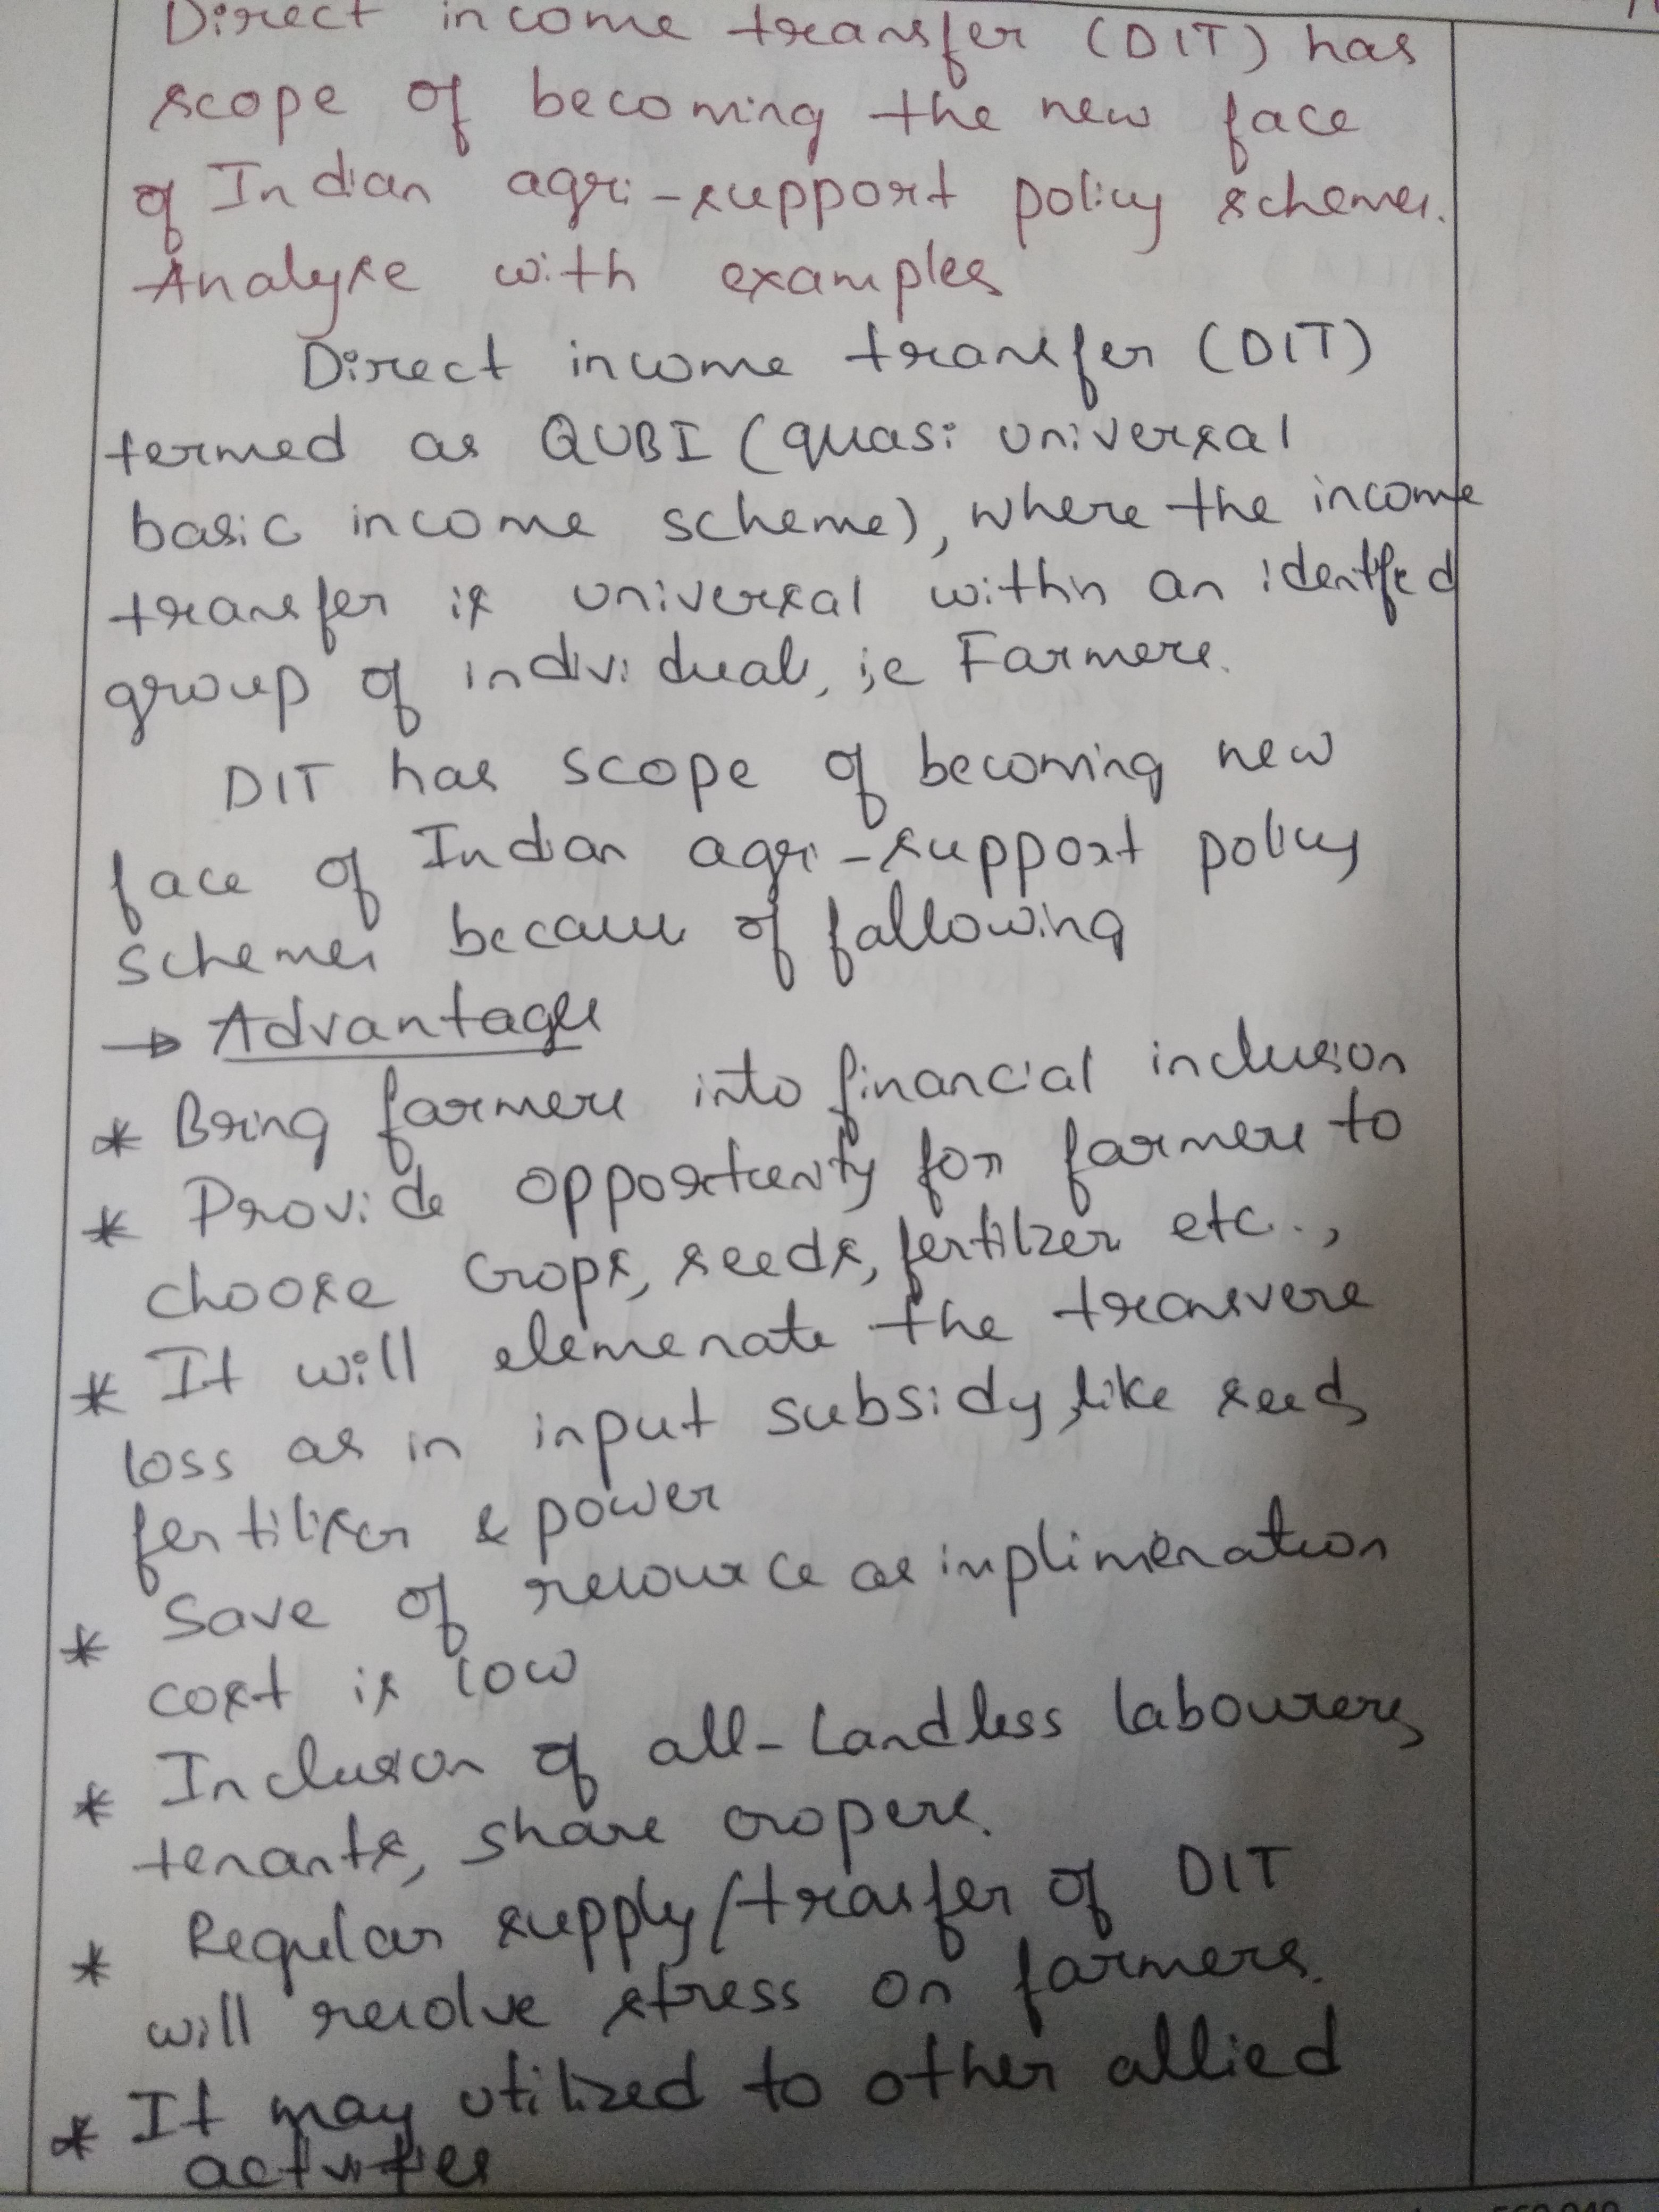 Direct income transfer (DIT) has
scope of becoming the new face
of Indian agri-support policy schemes.
Analyse with examples
Direct income transfer (DIT)
termed as QUBI (quasi universal
basic income scheme), where the income
transfer is universal within an identfed
group of individual, i;e Farmers.
DIT has scope of becoming new
face of Indian agri-support policy
schemes because of fallowing
→ Advantages
* Bring farmers into financial inclusion
* Provide opportunity for farmers to
choose crops, seeds, fertilizer etc..,
* It will elemenate the transvere
loss as in input subsidy, like seeds
fertiliser & power
* Save of resource as implimenation
cost is low
* Inclusion of all-Landless labourers
tenants, share cropers.
* Regular supply/trasfer of DIT
will resolve stress on farmers.
* It may utilized to other allied
activities